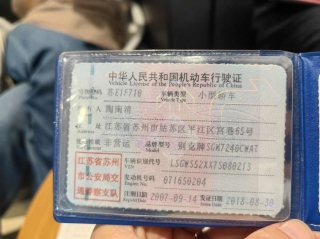 中华人民共和国机动车行驶证
Vehicle License of the People's Republic of China
号牌号码 苏E1F710 车辆类型 小型轿车
Vehicle Type
所有人 陶雨靖
住址 江苏省苏州市姑苏区平江区宫巷65号
使用性质 非营运 品牌型号 别克牌SGW7240CWAT
江苏省苏州
市公安局交
通警察支队
车辆识别代号 LSGWS52XX7S080213
发动机号码 071650204
Engine No.
注册日期 2007-09-14 发证日期 2018-08-30